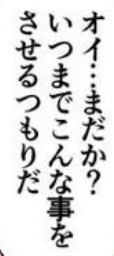 オイ…まだか？
いつまでこんな事を
させるつもりだ